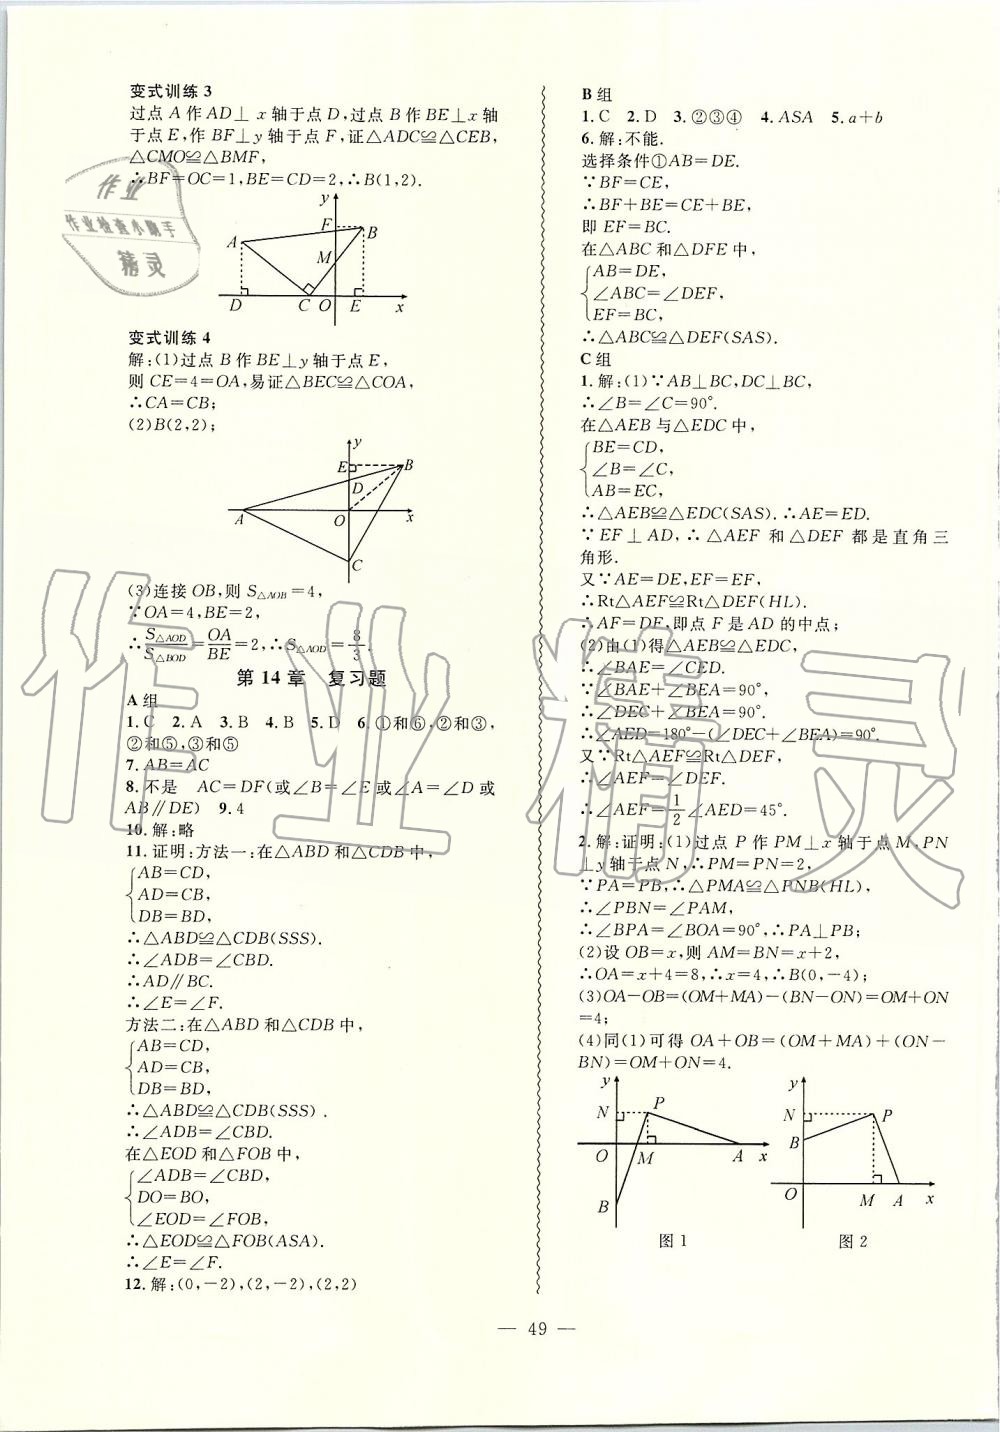 变式训练3
过点 A 作 AD⊥ x 轴于点 D,过点 B 作 BE⊥x 轴
于点 E,作 BF⊥y 轴于点 F,证△ADC≌△CEB,
△CMO≌△BMF,
∴BF=OC=1,BE=CD=2,∴B(1,2).
y
F
B
A
M
D
C
O
E
x
变式训练4
解:(1)过点 B 作 BE⊥y 轴于点 E,
则 CE=4=OA,易证△BEC≌△COA,
∴CA=CB;
(2)B(2,2);
y
E
B
D
A
O
x
C
(3)连接 OB,则 S△AOB=4,
∵OA=4,BE=2,
∴S△AOD/S△BOD=OA/BE=2,∴S△AOD=8/3.
第14章 复习题
A 组
1.C 2.A 3.B 4.B 5.D 6.①和⑥,②和③,
②和⑤,③和⑤
7.AB=AC
8.不是 AC=DF(或∠B=∠E 或∠A=∠D 或
AB∥DE) 9.4
10.解:略
11.证明:方法一:在△ABD 和△CDB 中,
AB=CD,
AD=CB,
DB=BD,
∴△ABD≌△CDB(SSS).
∴∠ADB=∠CBD.
∴AD∥BC.
∴∠E=∠F.
方法二:在△ABD 和△CDB 中,
AB=CD,
AD=CB,
DB=BD,
∴△ABD≌△CDB(SSS).
∴∠ADB=∠CBD.
在△EOD 和△FOB 中,
∠ADB=∠CBD,
DO=BO,
∠EOD=∠FOB,
∴△EOD≌△FOB(ASA).
∴∠E=∠F.
12.解:(0,-2),(2,-2),(2,2)
B 组
1.C 2.D 3.②③④ 4.ASA 5.a+b
6.解:不能.
选择条件①AB=DE.
∵BF=CE,
∴BF+BE=CE+BE,
即 EF=BC.
在△ABC 和△DFE 中,
AB=DE,
∠ABC=∠DEF,
EF=BC,
∴△ABC≌△DEF(SAS).
C 组
1.解:(1)∵AB⊥BC,DC⊥BC,
∴∠B=∠C=90°.
在△AEB 与△EDC 中,
BE=CD,
∠B=∠C,
AB=EC,
∴△AEB≌△EDC(SAS).∴AE=ED.
∵EF⊥AD,∴△AEF 和△DEF 都是直角三
角形.
又∵AE=DE,EF=EF,
∴Rt△AEF≌Rt△DEF(HL).
∴AF=DF,即点 F 是 AD 的中点;
(2)由(1)得△AEB≌△EDC,
∴∠BAE=∠CED.
∵∠BAE+∠BEA=90°,
∴∠DEC+∠BEA=90°.
∴∠AED=180°-(∠DEC+∠BEA)=90°.
又∵Rt△AEF≌Rt△DEF,
∴∠AEF=∠DEF.
∴∠AEF=1/2∠AED=45°.
2.解:证明:(1)过点 P 作 PM⊥x 轴于点 M,PN
⊥y轴于点 N,∴PM=PN=2,
∵PA=PB,∴△PMA≌△PNB(HL),
∴∠PBN=∠PAM,
∴∠BPA=∠BOA=90°,∴PA⊥PB;
(2)设 OB=x,则 AM=BN=x+2,
∴OA=x+4=8,∴x=4,∴B(0,-4);
(3)OA-OB=(OM+MA)-(BN-ON)=OM+ON
=4;
(4)同(1)可得 OA+OB=(OM+MA)+(ON-
BN)=OM+ON=4.
y
N
P
O
M
A
x
B
图1
y
N
P
B
O
M
A
x
图2
— 49 —
作业
作业检查小助手
精灵
作业精灵